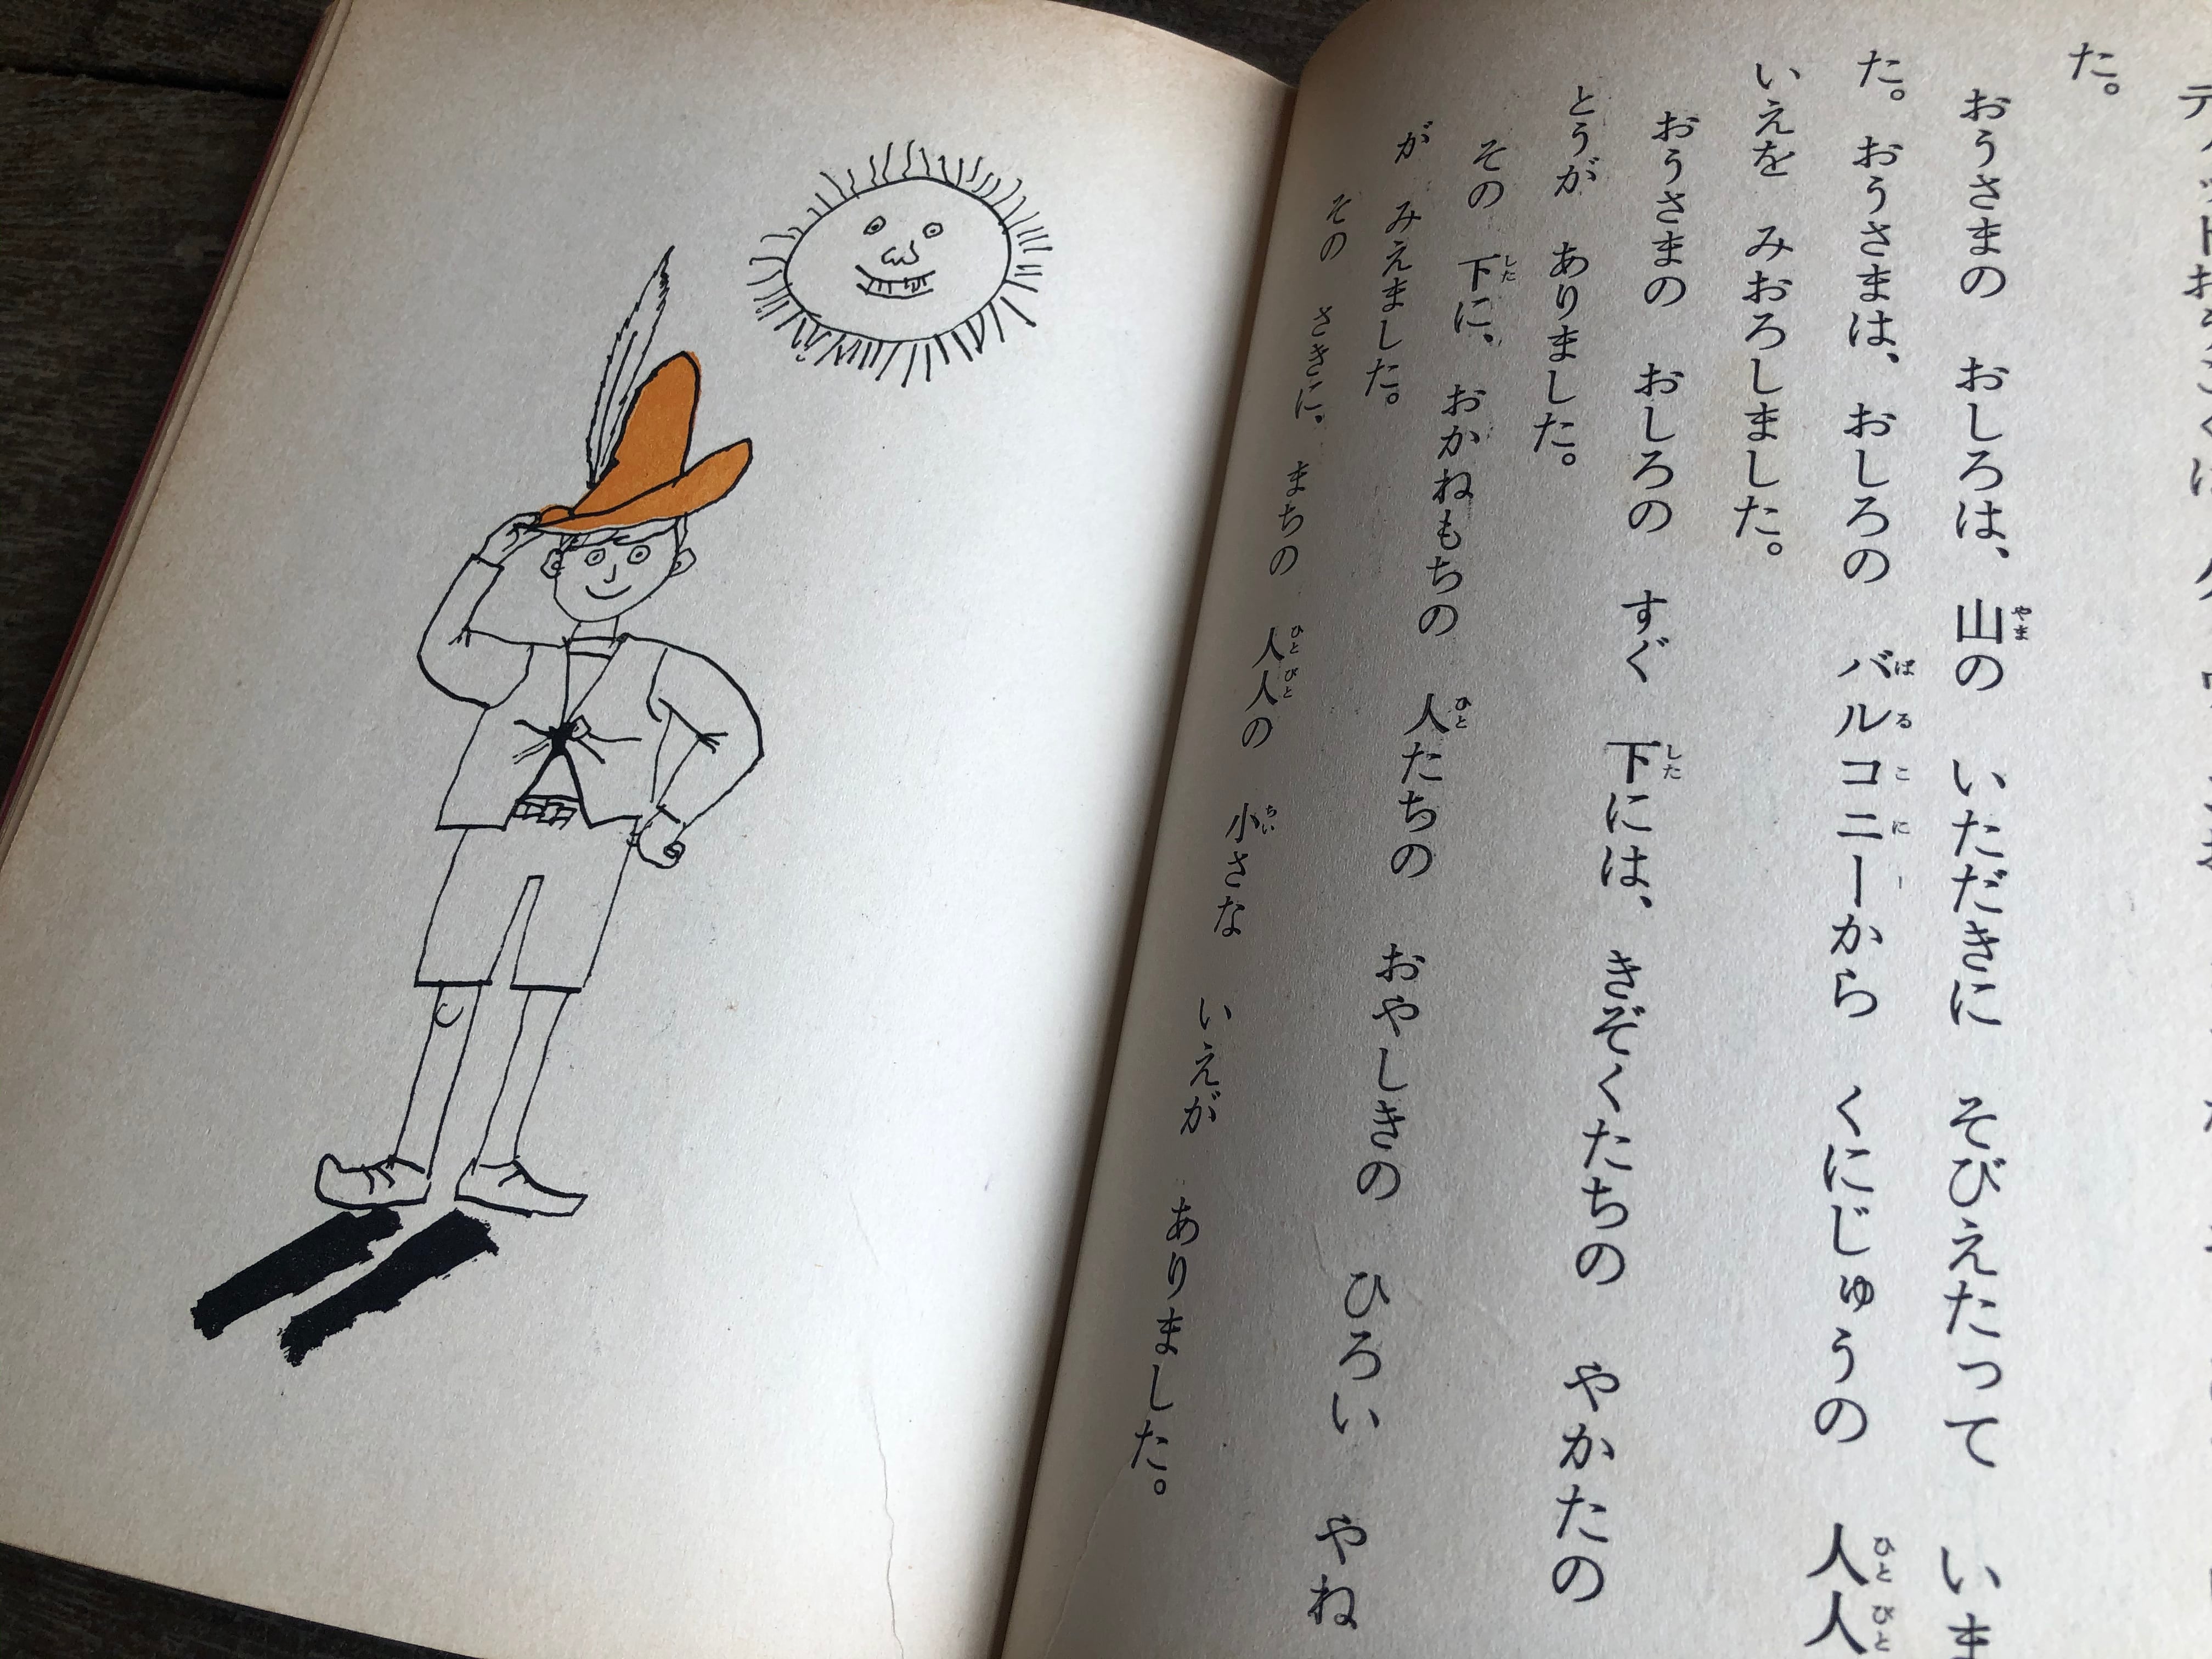 た。
おうさまの　おしろは、山の　いただきに　そびえたって　いま
た。おうさまは、おしろの　バルコニーから　くにじゅうの　人人
いえを　みおろしました。
おうさまの　おしろの　すぐ　下には、きぞくたちの　やかたの
とうが　ありました。
その　下に、おかねもちの　人たちの　おやしきの　ひろい　やね
が　みえました。
その　さきに、まちの　人人の　小さな　いえが　ありました。